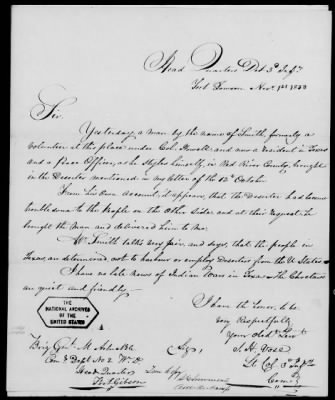 Head Quarters Det 3d Infy
Fort Towson Novr. 1st 1838
Sir.
Yesterday a man by the name of Smith, formerly a
volunteer at this place under Col. Howell and now a resident in Texas
and a Peace Officer, as he styles himself, in Red River County, brought
in the Deserter mentioned in my letter of the 12th October.
From his own account, it appears, that the Deserter had become
troublesome to the People on the other side and at their request he
brought the man and delivered him to me.
Mr Smith talks very fair, and says, that the people in
Texas are determined not to harbour or employ Deserters from the U States.
I have no late news of Indian Wars in Texas - the Choctaws
are quiet and friendly.
I have the honor, to be
very Respectfully
Your Obdt Servt
J. H. Vose
Lt Col 3d Infy
Comg
THE
NATIONAL ARCHIVES
OF THE
UNITED STATES
Brig Genl M Arbuckle
Com g Dept No 2 W. D
Head Quarters
Fort Gibson